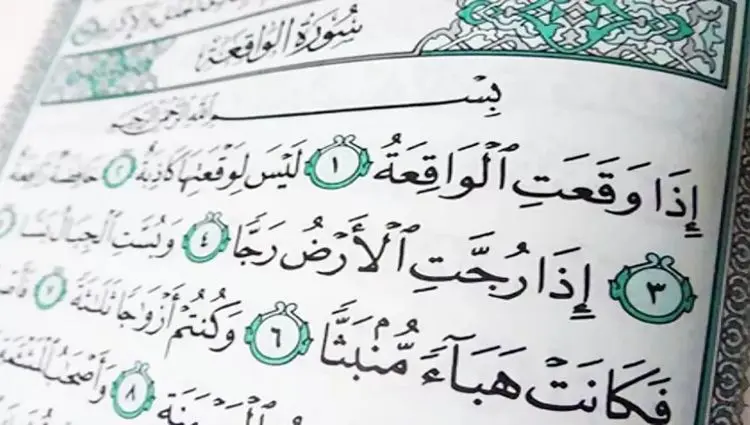 سُورَةُ الوَاقِعَة
بِسْمِ اللَّهِ الرَّحْمَٰنِ الرَّحِيمِ
إِذَا وَقَعَتِ ٱلْوَاقِعَةُ ١ لَيْسَ لِوَقْعَتِهَا كَاذِبَةٌ ٢ خَافِضَةٌ رَّافِعَةٌ
٣ إِذَا رُجَّتِ ٱلْأَرْضُ رَجًّا ٤ وَبُسَّتِ ٱلْجِبَالُ بَسًّا
فَكَانَتْ هَبَآءً مُّنۢبَثًّا ٦ وَكُنتُمْ أَزْوَٰجًا ثَلَٰثَةً ٧
٨ وَأَصْحَٰبُ ٱلْمَشْـَٔمَةِ